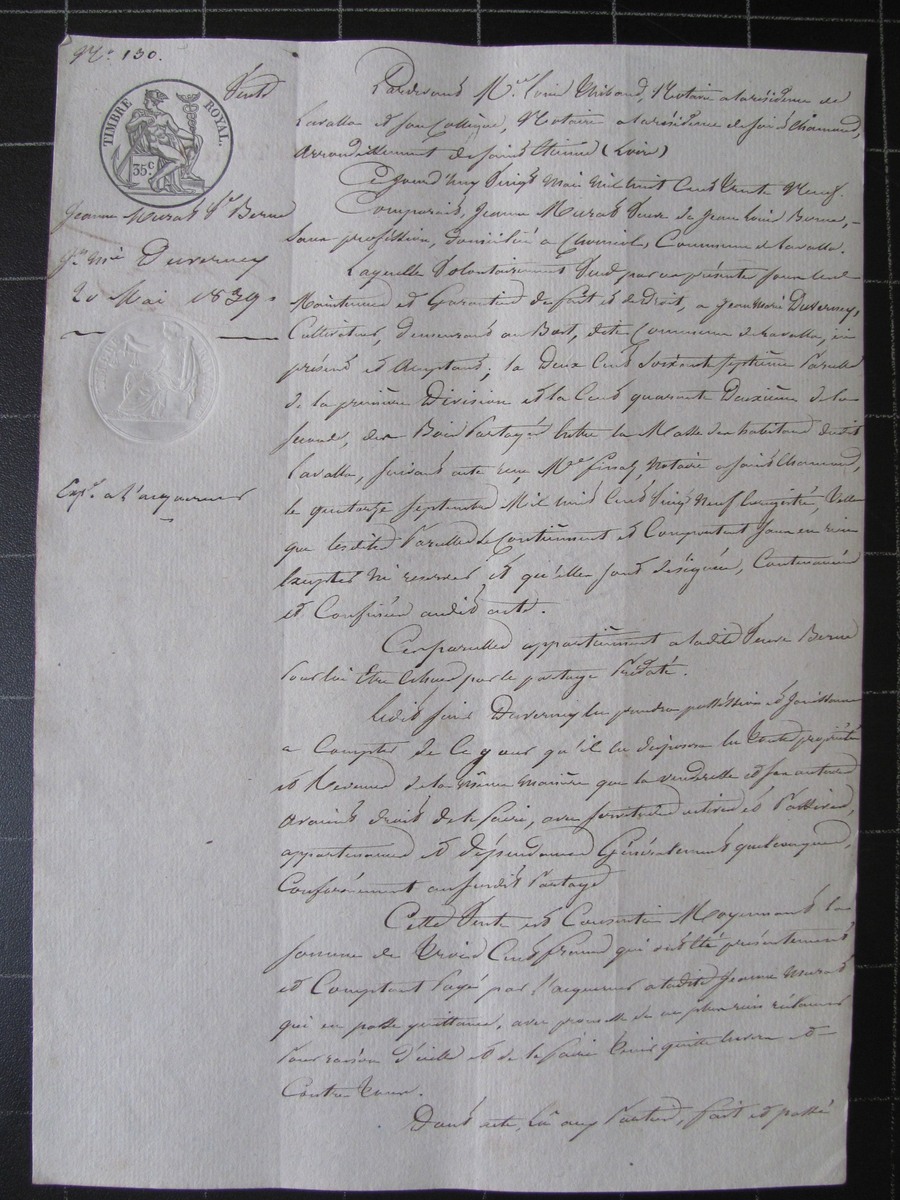 N.º 130.
TIMBRE ROYAL.
35 c.
Vente
Jeanne Murat Vᵉ Berne
Jⁿ Mⁱᵉ Duvernay
20 Mai 1839.
Expᵒⁿ a l'acquereur
Pardevant Mᵉ Louis Thibaud, Notaire a la résidence de
Lavalla et son Collègue, Notaire a la résidence de Saint Chamond,
Arrondissement de Saint Etienne (Loire)
Ce Jourd'huy Vingt Mai Mil huit Cent Trente Neuf.
Comparait, Jeanne Murat Veuve de Jean Louis Berne,
Sans profession, domiciliée a Commune de Lavalla.
Laquelle Volontairement Vend par ces présentes sous les
Maintenue et Garantie de fait et de Droit, a Jean Marie Duvernay,
Cultivateur, demeurant au Bost, dite Commune de Lavalla, ici
présent et acceptant; la Deux Cent Soixante septième Parcelle
de la première Division et la Cent quarante Deuxième de la
seconde, des Bois Partagés Entre la Masse des habitans dudit
Lavalla, suivant acte reçu, Mᵉ Finaz, Notaire a Saint Chamond,
le quatorze Septembre Mil huit Cent Vingt Neuf Enregistré, Telle
que lesdites Parcelles se Contiennent et Comportent Sans en rien
Excepter Ni reserver et qu'elles sont désignées, Contenancées
et Confinées audit acte.
Ces parcelles appartiennent a ladite Veuve Berne
Pour lui Etre échues par le partage Prédaté.
Ledit Jean Duvernay en prendra possession et Jouissance
a Compter de Ce Jour qu'il en disposera En Toute propriété
et Revenus de la même manière que la venderesse et ses auteurs
avaient droit de le faire, avec servitudes actives et Passives,
appartenances et dépendances Généralement quelconques,
Conformément au susdit Partage
Cette Vente est Consentie Moyennant la
somme de Trois Cent francs qui a été présentement
et Comptant Payé par l'acquereur a ladite Jeanne Murat
qui en passe quittance, avec promesse de ne plus rien réclamer
Pour raison d'icelle et de le faire Tenir quitte Envers et
Contre Tous.
Dont acte, Lû aux Parties, fait et passé